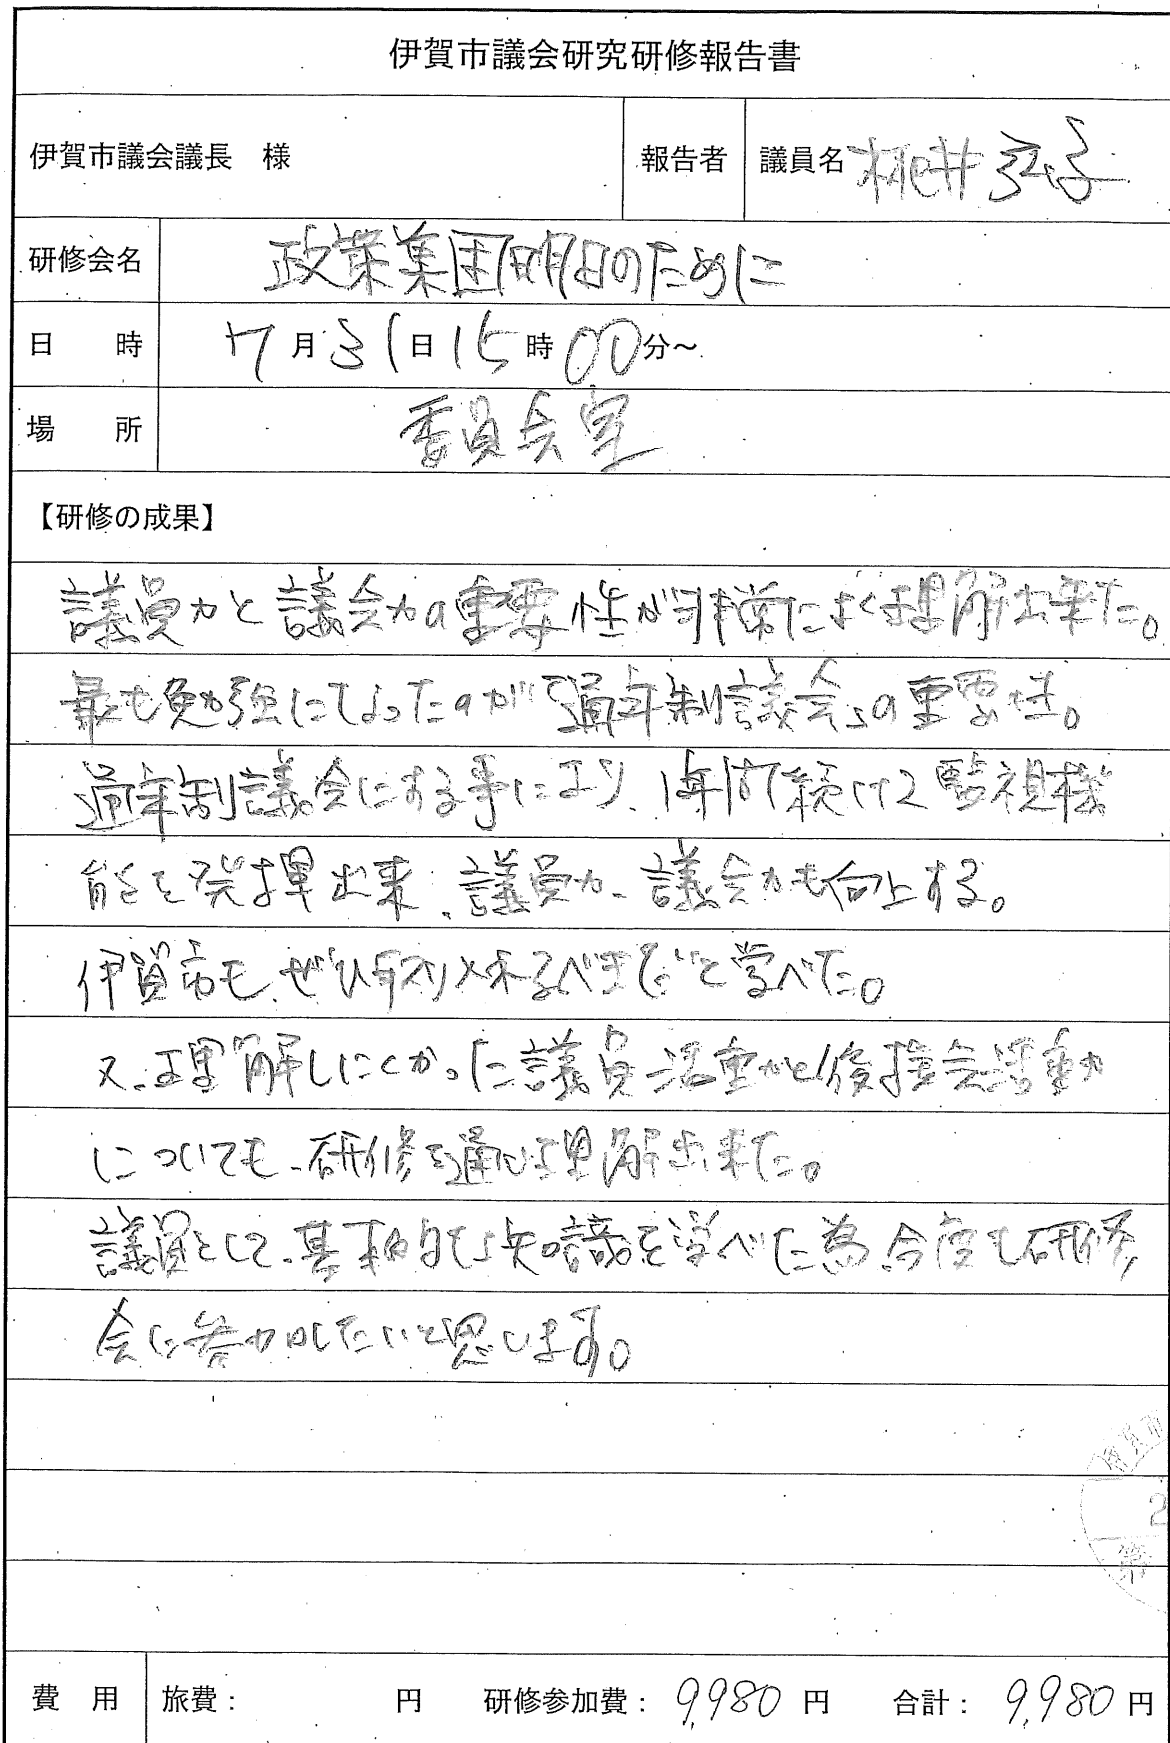 伊賀市議会研究研修報告書
伊賀市議会議長　様
報告者
議員名 桃井弘子
研修会名 政策集団明日のために
日　時 7月31日15時00分～
場　所 委員会室
【研修の成果】
議員力と議会力の重要性が非常によく理解出来た。
最も勉強になったのが「通年制議会」の重要性。
通年制議会にする事により、1年間続けて監視機
能を発揮出来、議員力、議会力も向上する。
伊賀市も、ぜひ取り入れるべきだと学べた。
又、理解しにくかった議員活動と後援会活動
についても、研修を通じ理解出来た。
議員として、基本的な知識を学べた為、今度も研修
会に参加したいと思います。
費　用 旅費：　円　研修参加費：9,980円　合計：9,980円